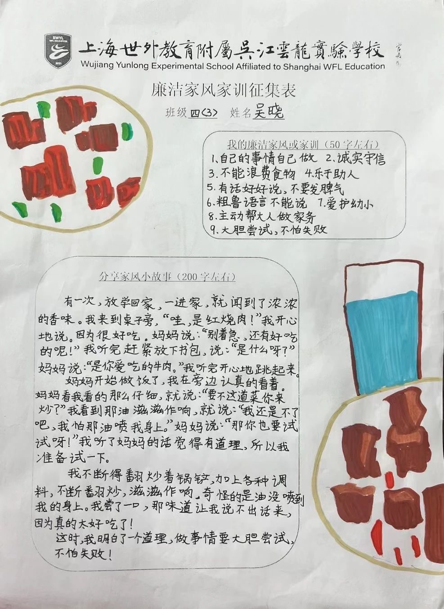 上海世外教育附属吴江云龙实验学校
Wujiang Yunlong Experimental School Affiliated to Shanghai WFL Education
廉洁家风家训征集表
班级 四(3) 姓名 吴晓
我的廉洁家风或家训（50字左右）
1、自己的事情自己做 2、诚实守信
3、不能浪费食物 4、乐于助人
5、有话好好说，不要发脾气
6、粗鲁语言不能说 7、爱护幼小
8、主动帮大人做家务
9、大胆尝试，不怕失败
分享家风小故事（200字左右）
有一次，放学回家，一进家，就闻到了浓浓
的香味。我来到桌子旁，“哇，是红烧肉！”我开心
地说。因为很好吃。妈妈说：“别着急，还有好吃
的呢！”我听完赶紧放下书包，说：“是什么呀？”
妈妈说：“是你爱吃的牛肉。”我听完开心地跳起来。
妈妈开始做饭了，我在旁边认真的看着。
妈妈看我看的那么仔细，就说：“要不这道菜你来
炒？”我看到那油滋滋作响，就说：“我还是不了
吧，我怕那油喷我身上。”妈妈说：“那你也要试
试呀！”我听了妈妈的话觉得有道理，所以我
准备试一下。
我不断得翻炒着锅铲，加上各种调
料，不断翻炒，滋滋作响。奇怪的是油没喷到
我的身上。我尝了一口，那味道让我说不出话来，
因为真的太好吃了！
这时，我明白了个道理，做事情要大胆尝试，
不怕失败！